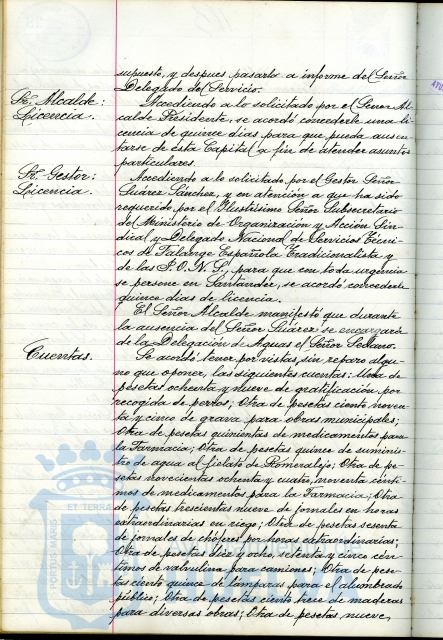 supuesto, y despues pasarlo a informe del Señor
Delegado del Servicio.
Sr. Alcalde:
Licencia.
Accediendo a lo solicitado por el Señor Al-
calde Presidente, se acordó concederle una li-
cencia de quince dias para que pueda ausen-
tarse de ésta Capital a fin de atender asuntos
particulares.
Sr. Gestor:
Licencia.
Accediendo a lo solicitado por el Gestor Señor
Suárez Sánchez, y en atención a que ha sido
requerido por el Ilustrísimo Señor Subsecretario
del Ministerio de Organización y Acción Sin-
dical y Delegado Nacional de Servicios Técni-
cos de Falange Española Tradicionalista y
de las J.O.N.S., para que con toda urgencia
se persone en Santander, se acordó concederle
quince dias de licencia.
El Señor Alcalde manifestó que durante
la ausencia del Señor Suárez se encargará
de la Delegación de Aguas el Señor Sedano.
Cuentas.
Se acordó tener por vistas, sin reparo algu-
no que oponer, las siguientes cuentas: Una de
pesetas ochenta y nueve de gratificación por
recogida de perros; Otra de pesetas ciento noven-
ta y cinco de grava para obras municipales;
Otra de pesetas quinientas de medicamentos para
la Farmacia; Otra de pesetas quince de suminis-
tro de agua al fielato de Romeralejo; Otra de pe-
setas novecientas ochenta y cuatro, noventa cénti-
mos de medicamentos para la Farmacia; Otra
de pesetas trescientas nueve de jornales en horas
extraordinarias en riego; Otra de pesetas sesenta
de jornales de chóferes por horas extraordinarias;
Otra de pesetas diez y ocho, setenta y cinco cén-
timos de valvulina para camiones; Otra de pese-
tas ciento quince de lámparas para el alumbrado
público; Otra de pesetas ciento trece de maderas
para diversas obras; Otra de pesetas nueve,
PORTUS MARIS ET TERRA